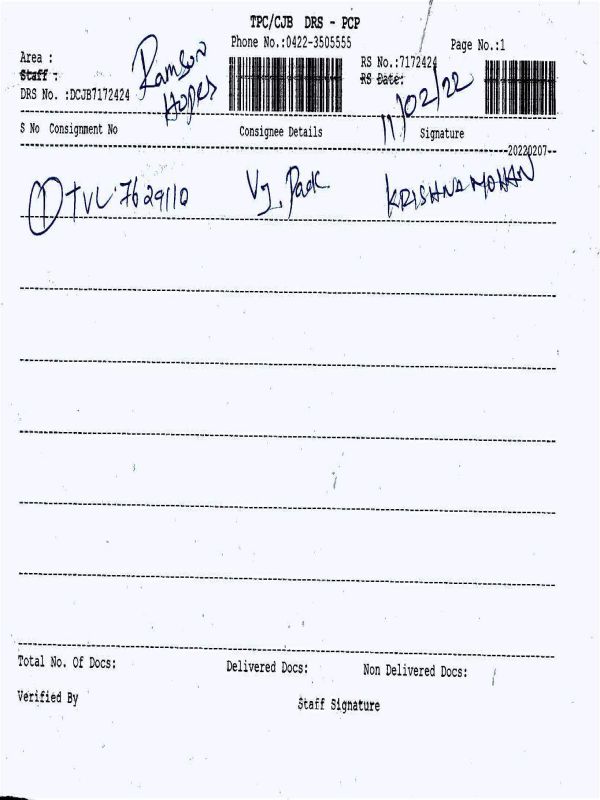 TPC/CJB DRS - PCP
Phone No.:0422-3505555
Page No.:1
Area : Ramson
Staff : Hopes
RS No.:7172424
RS Date: 11/02/22
DRS No. :DCJB7172424
S No Consignment No Consignee Details Signature
20220207
1 TVL 7629110 VJ. Pack KRISHNA MOHAN
Total No. Of Docs: Delivered Docs: Non Delivered Docs:
Verified By Staff Signature